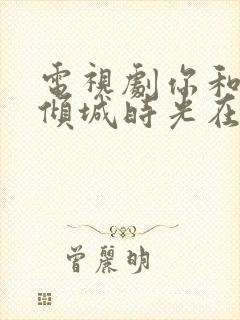 電視劇你和
傾城時光在
曾麗明